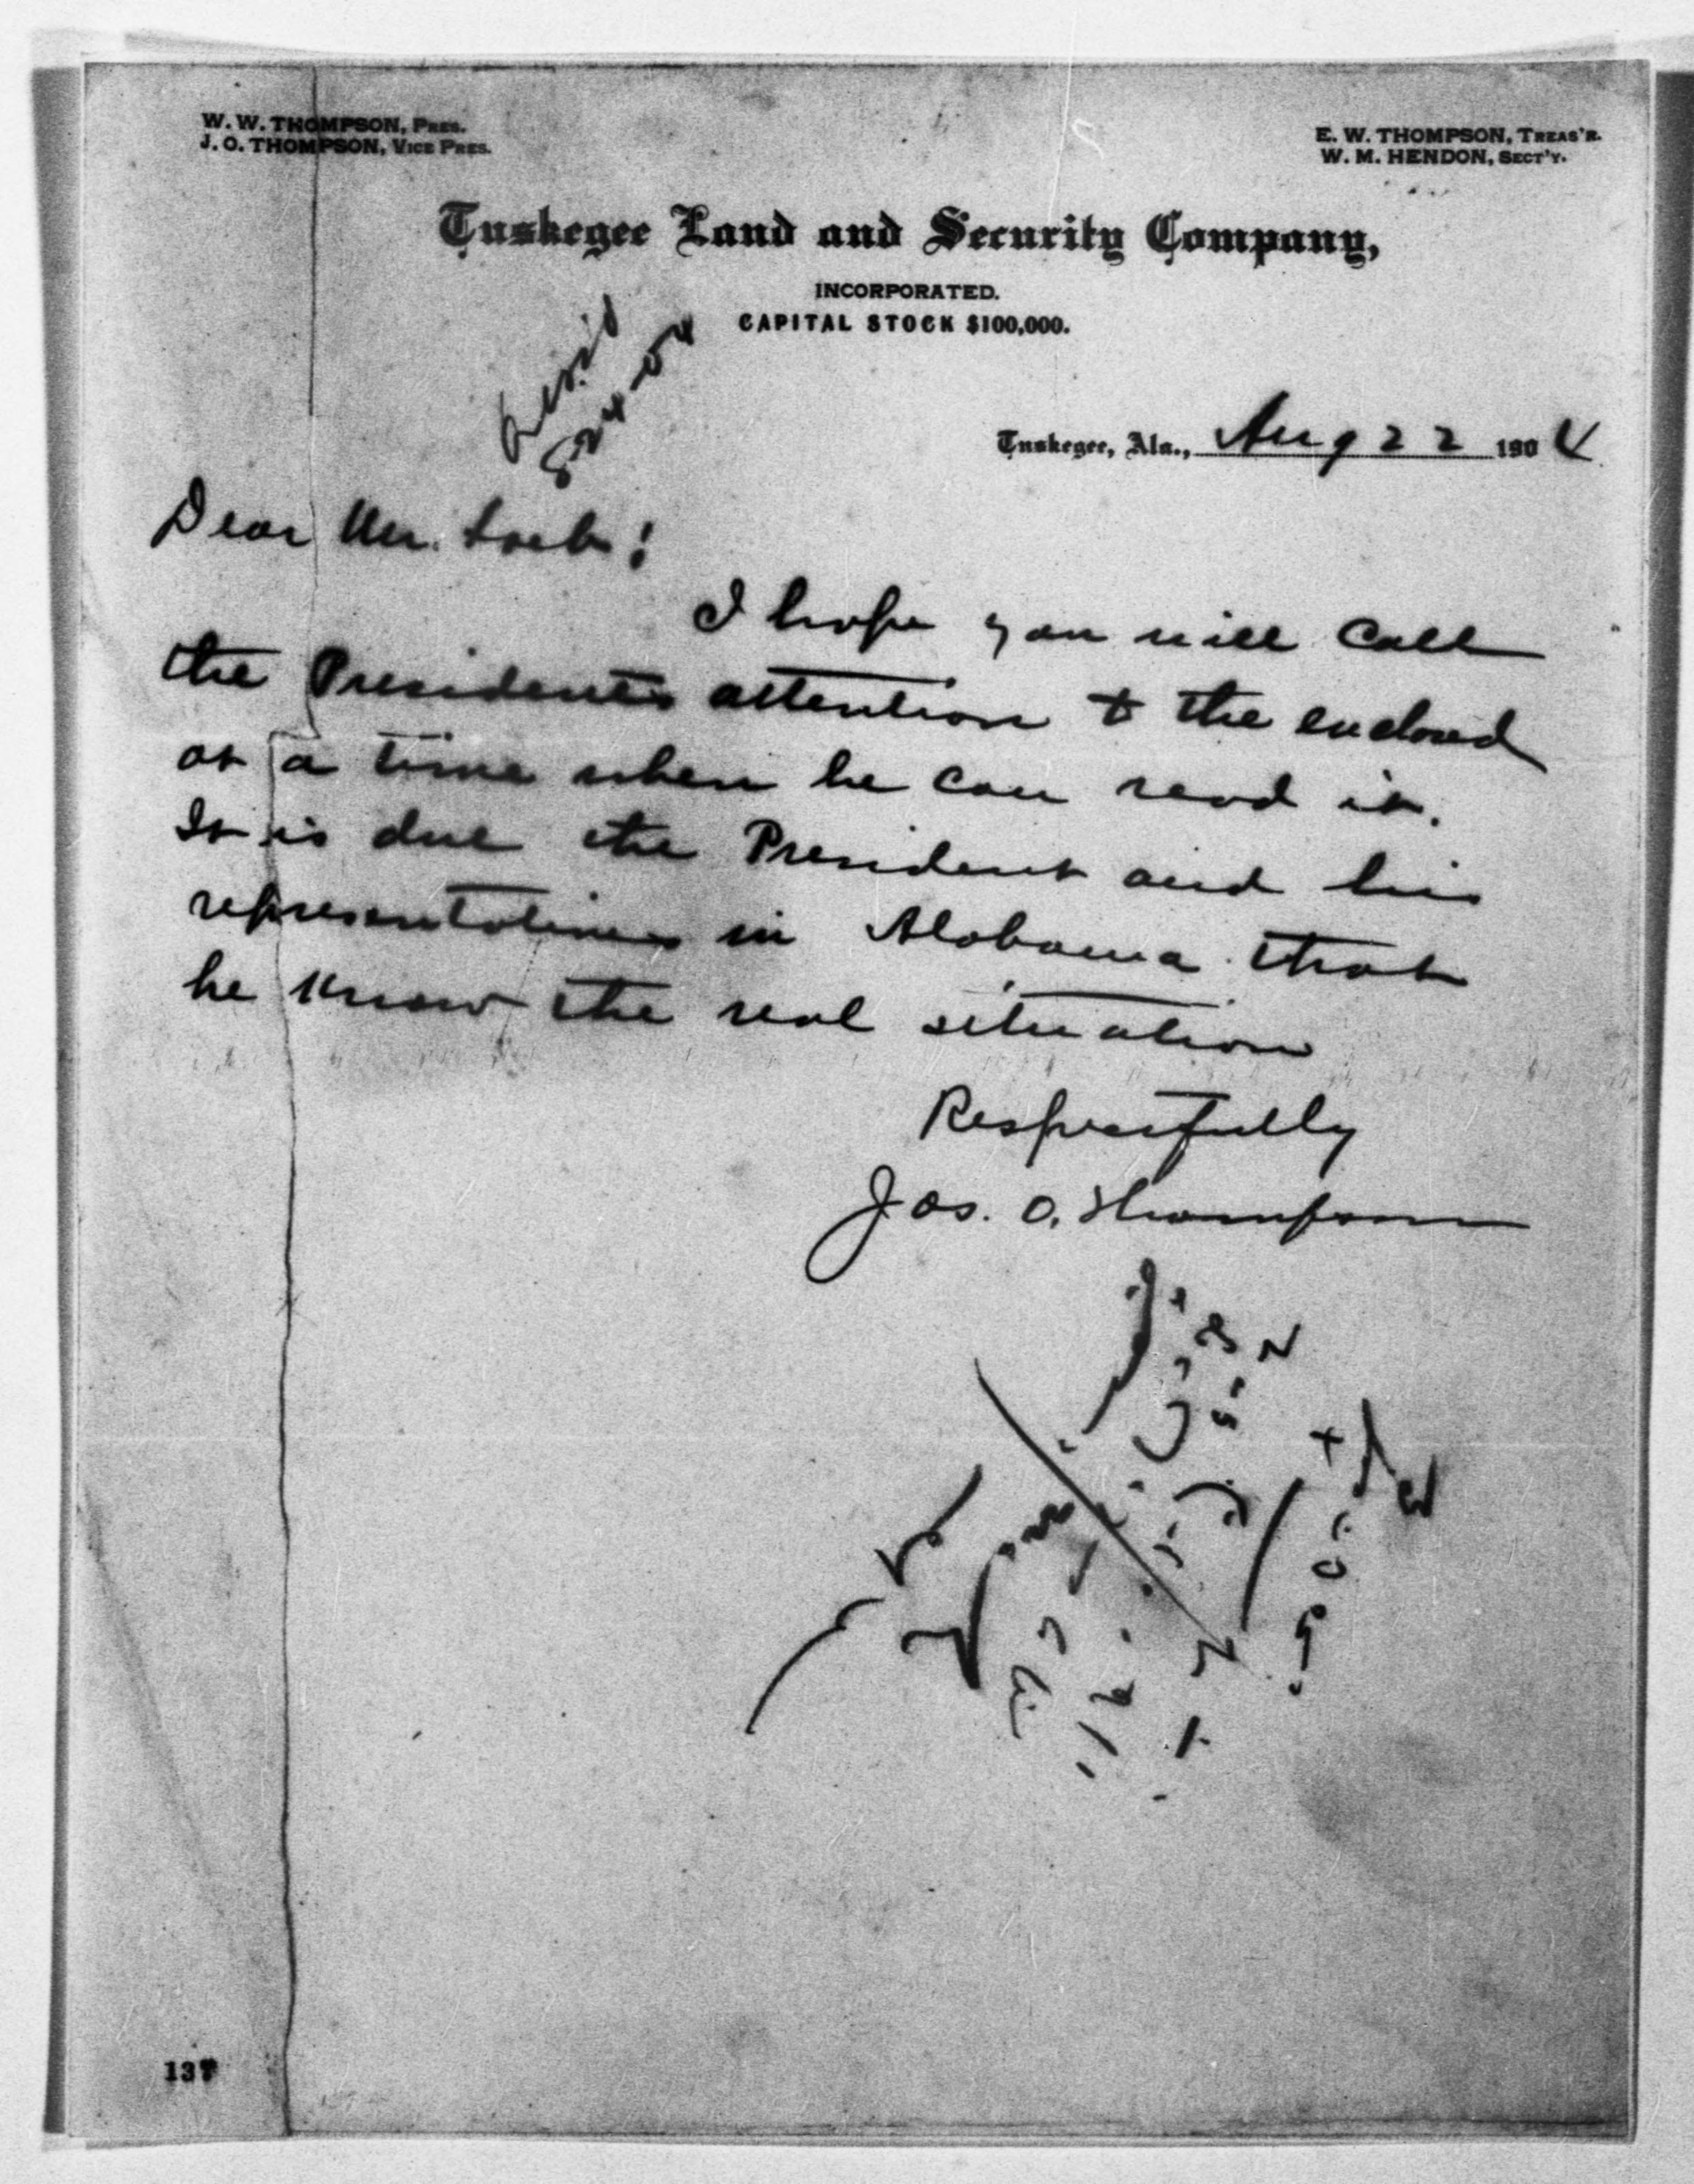 W. W. THOMPSON, PRES.
J. O. THOMPSON, VICE PRES.
E. W. THOMPSON, TREAS'R.
W. M. HENDON, SECT'Y.
Tuskegee Land and Security Company,
INCORPORATED.
CAPITAL STOCK $100,000.
8-24-04
Tuskegee, Ala., Aug 22 1904
Dear Mr. Loeb:
I hope you will call
the Presidents attention to the enclosed
at a time when he can read it.
It is due the President and his
representatives in Alabama that
he know the real situation
Respectfully
Jos. O. Thompson
137